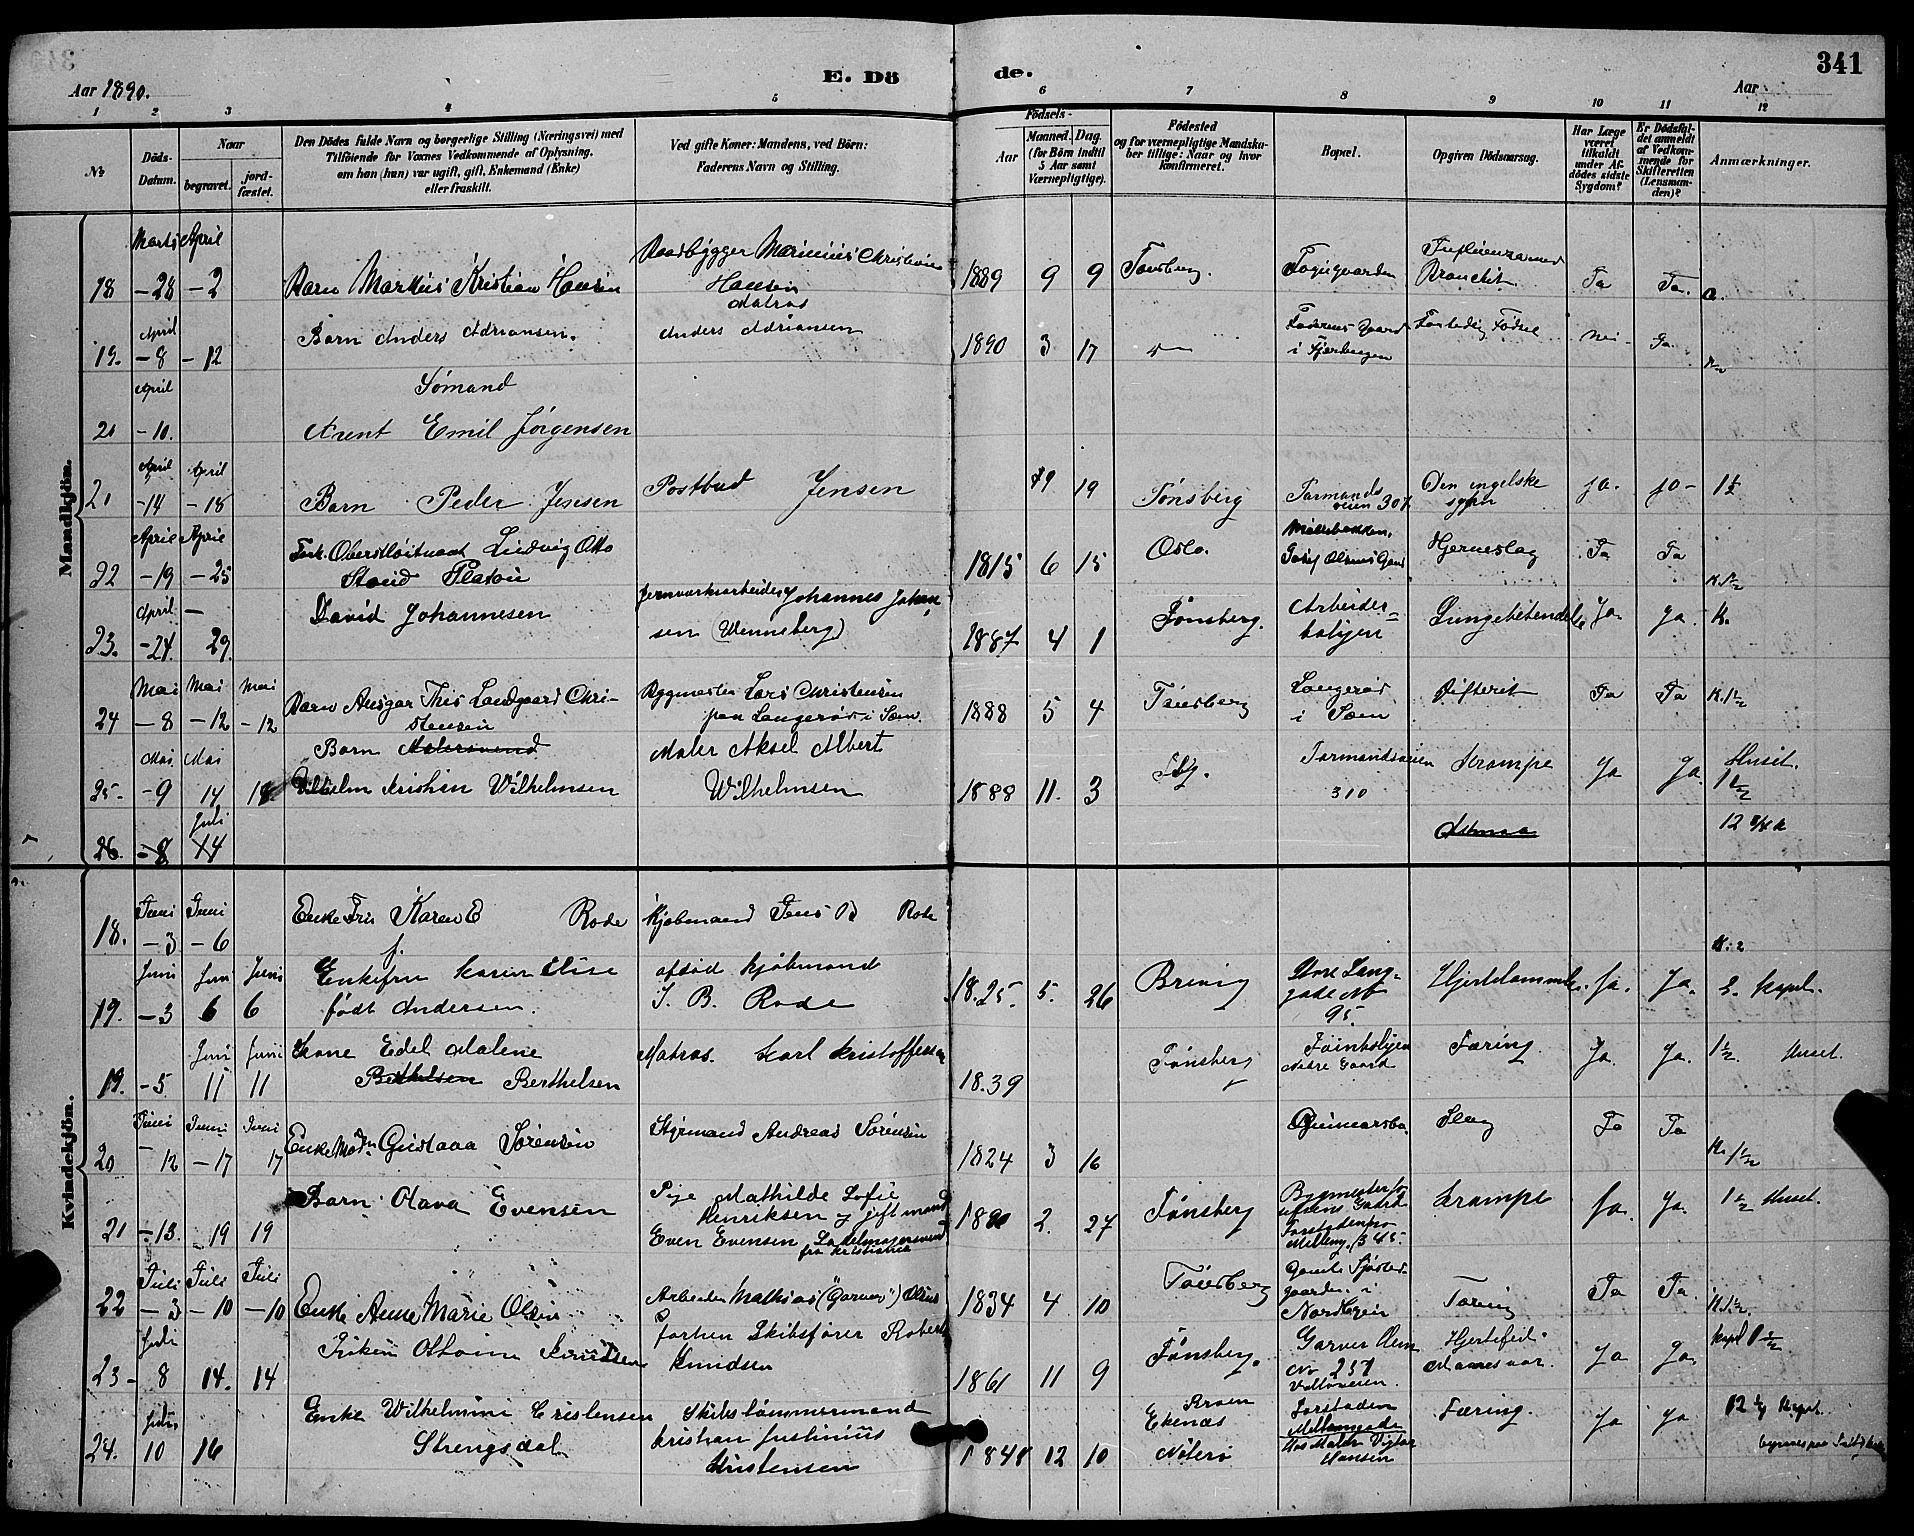 341
Aar 1890.
E. Dö
de.
Aar
1 2 3 4 5 6 7 8 9 10 11 12
№
Döds-
Datum.
Naar
begravet.
jord-
fæstet.
Den Dödes fulde Navn og borgerlige Stilling (Næringsvei) med
Tilföiende for Voxnes Vedkommende af Oplysning,
om han (hun) var ugift, gift, Enkemand (Enke)
eller fraskilt.
Ved gifte Koner: Mandens, ved Börn:
Faderens Navn og Stilling.
Födsels-
Aar
Maaned.
Dag.
(for Börn indtil
5 Aar samt
Værnepligtige).
Födested
og for værnepligtige Mandska-
ber tillige: Naar og hvor
konfirmeret.
Bopæl.
Opgiven Dödsaarsag.
Har Læge
været
tilkaldt
under Af-
dödes sidste
Sygdom?
Er Dödsfal-
det anmeldt
af Vedkom-
mende for
Skifteretten
(Lensman-
den)?
Anmærkninger.
Mandkjön.
Marts April
18 - 28 - 2 Barn Markus Kristian Hansen
Baadbygger Marinius Christian
Hansen
1889 9 9 Tønsberg. Fogegaarden
Influenza med
Bronchit Ja Ja.
April
19. - 8 - 12 Barn Anders Adriansen.
Matros
Anders Adriansen
1890 3 17
Faderens Gaard
i Fjærbyen
For tidlig Födsel Nei Ja.
April
- 10.
Sømand
Arent Emil Jørgensen
April April
21 - 14 - 18 Barn Peder Jensen
Postbud Jensen
89 19 Tønsberg
Farmands
veien 307
Den engelske
sygen ja. ja - 1½
April April
22 - 19 - 25
Fork. Oberstløitnant Ludvig Otto
Stoud Platou
1815 6 15 Oslo.
Møllebakken,
Josef Olsens Gaard
Hjerneslag Ja Ja K. 1½
April -
23. - 24. 29. David Johannesen
Jernværksarbeider Johannes Johan
sen (Wennsberg)
1887 4 1 Tønsberg.
Arbeider-
boligen
Lungebetendelse Ja. ja. K.
Mai Mai Mai
24 - 8 - 12 - 12
Barn Ansgar This Landgaard Chri-
stensen
Bygmester Lars Christensen
paa Langerød i Sæm
1888 5 4 Tønsberg
Langerød
i Sæm
Difterit Ja Ja K. 1½
Mai Mai
25. - 9 14 18
Barn
Vilhelm Kristian Wilhelmsen
Maler Aksel Albert
Wilhelmsen
1888 11. 3 Tbg.
Farmandsveien
310
Krampe Ja Ja.
Huset.
1½
Juli
26. - 8 14
Kvindekjön.
Juni Juni
18. - 3 - 6 Enke Fru Karen E Rode
Kjøbmand Jens B Rode
K. 2
Juni Juni Juni
19. - 3 6 6
Enkefru Karen Elise
født Andersen.
afdød Kjøbmand
J. B. Rode
1825. 5. 26 Brevig
Store Lang-
gade No
95.
Hjertelammelse. Ja. Ja. 2. Kapel.
Juni Juni
19. - 5 11 11
Kone Edel Malene
Berthelsen Berthelsen
Matros. Karl Kristoffersen
1839 Tønsberg
Føinboligen
Nedre Gaard
Tæring. Ja. Ja. 1½ Huset.
Juni Juni Juni
20 - 12 - 17 17 Enke Mad. Gustava Sørensen
Styrmand Andreas Sørensen
1824 3 16
Gunnarsbo. Slag Ja Ja K. 1½
21 - 13. 19 19 Barn Olava Evensen
Pige Mathilde Sofie
Henriksen og gift mand
Even Evensen Sadelmagersvend
fra Kristiania
1890 2. 27 Tønsberg
Krampe Ja. Ja. 1½ Huset.
Juli Juli Juli
22 - 3 - 10 - 10 Enke Anne Marie Olsen
Arbeider Mathias ("Garver") Olsen
1834 4 10 Tønsberg
Gamle Sjøstad-
gaarden i
Nordbyen
Tæring Ja Ja. K. 1½.
Juli
23 - 8 14. 14
Frøken Othonie Knudsen
Forhen Skibsfører Robert
Knudsen
1861 11 9 Tønsberg.
Garver Olsen
No 257
Hjertefeil. Ja Ja. Kapel 1½
Juli
24. 10 16
Enke Wilhelmine Cristensen
Strengsdal
Skibstømmermand
Kristian Justinius
Kristensen
1848 12 10
Ekenæs
Nøterø
Forstaden
Møllegade
Hos Maler Vigtor
Hansen
Tæring. Ja Ja Kapel.